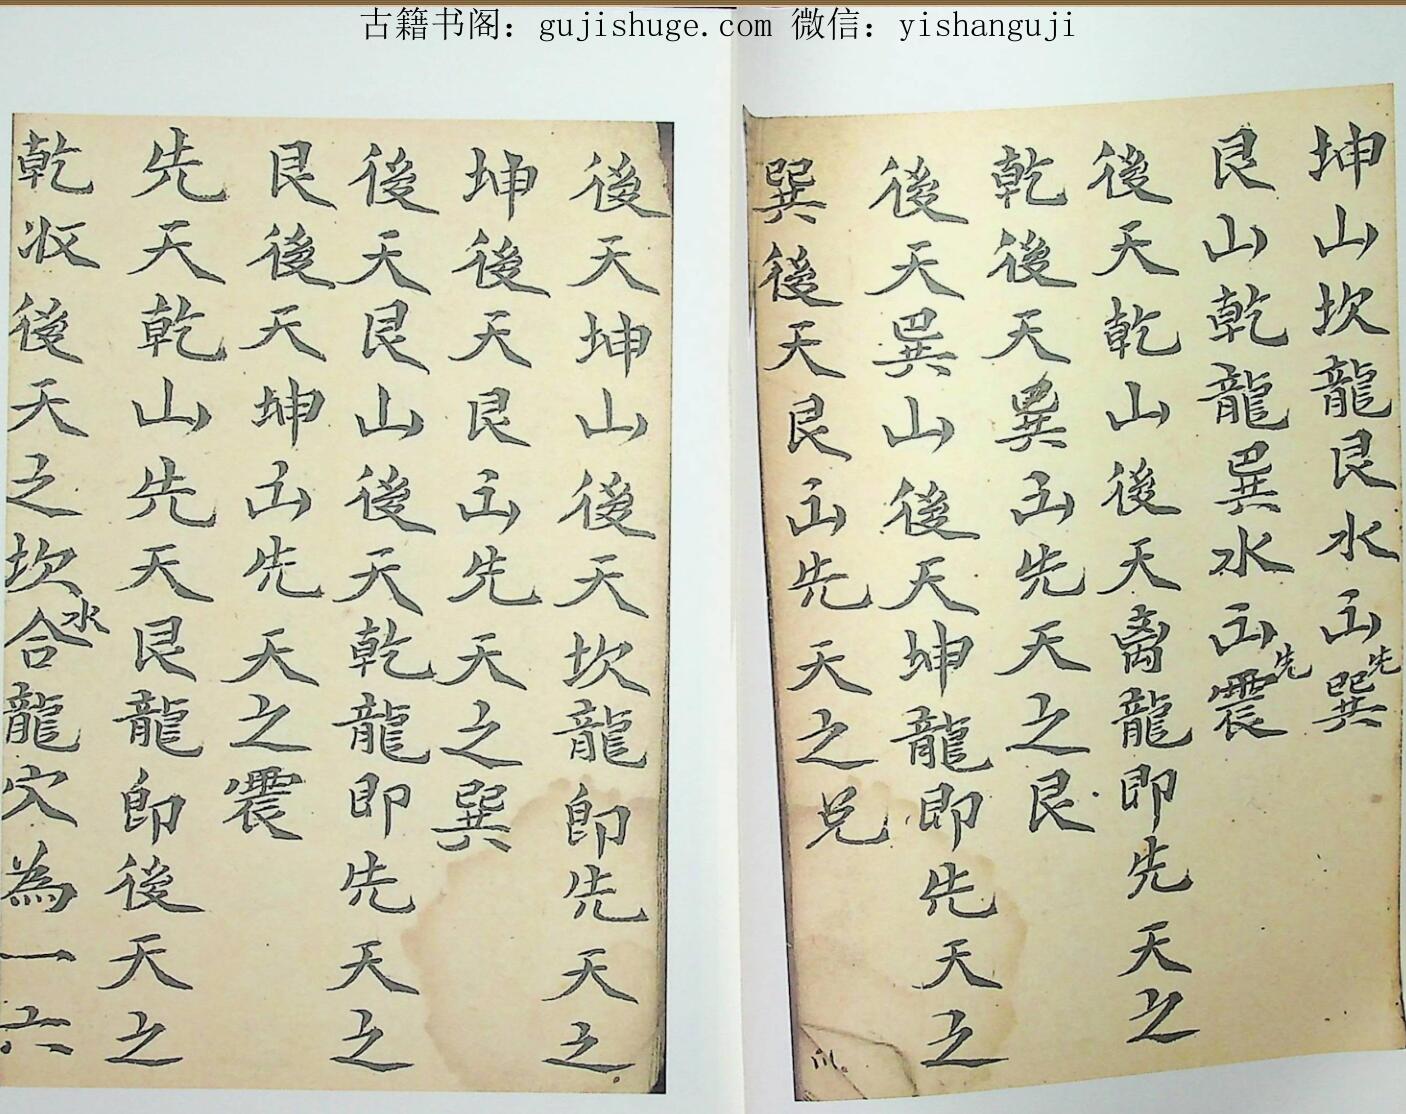 古籍书阁：gujishuge.com 微信：yishanguji
坤山坎龍艮水㐀先巽
艮山乾龍巽水㐀先震
後天乾山後天离龍即先天之
乾後天巽㐀先天之艮
後天巽山後天坤龍即先天之
巽後天艮㐀先天之兑
後天坤山後天坎龍即先天之
坤後天艮㐀先天之巽
後天艮山後天乾龍即先天之
艮後天坤㐀先天之震
先天乾山先天艮龍即後天之
乾収後天之坎水合龍穴為一六